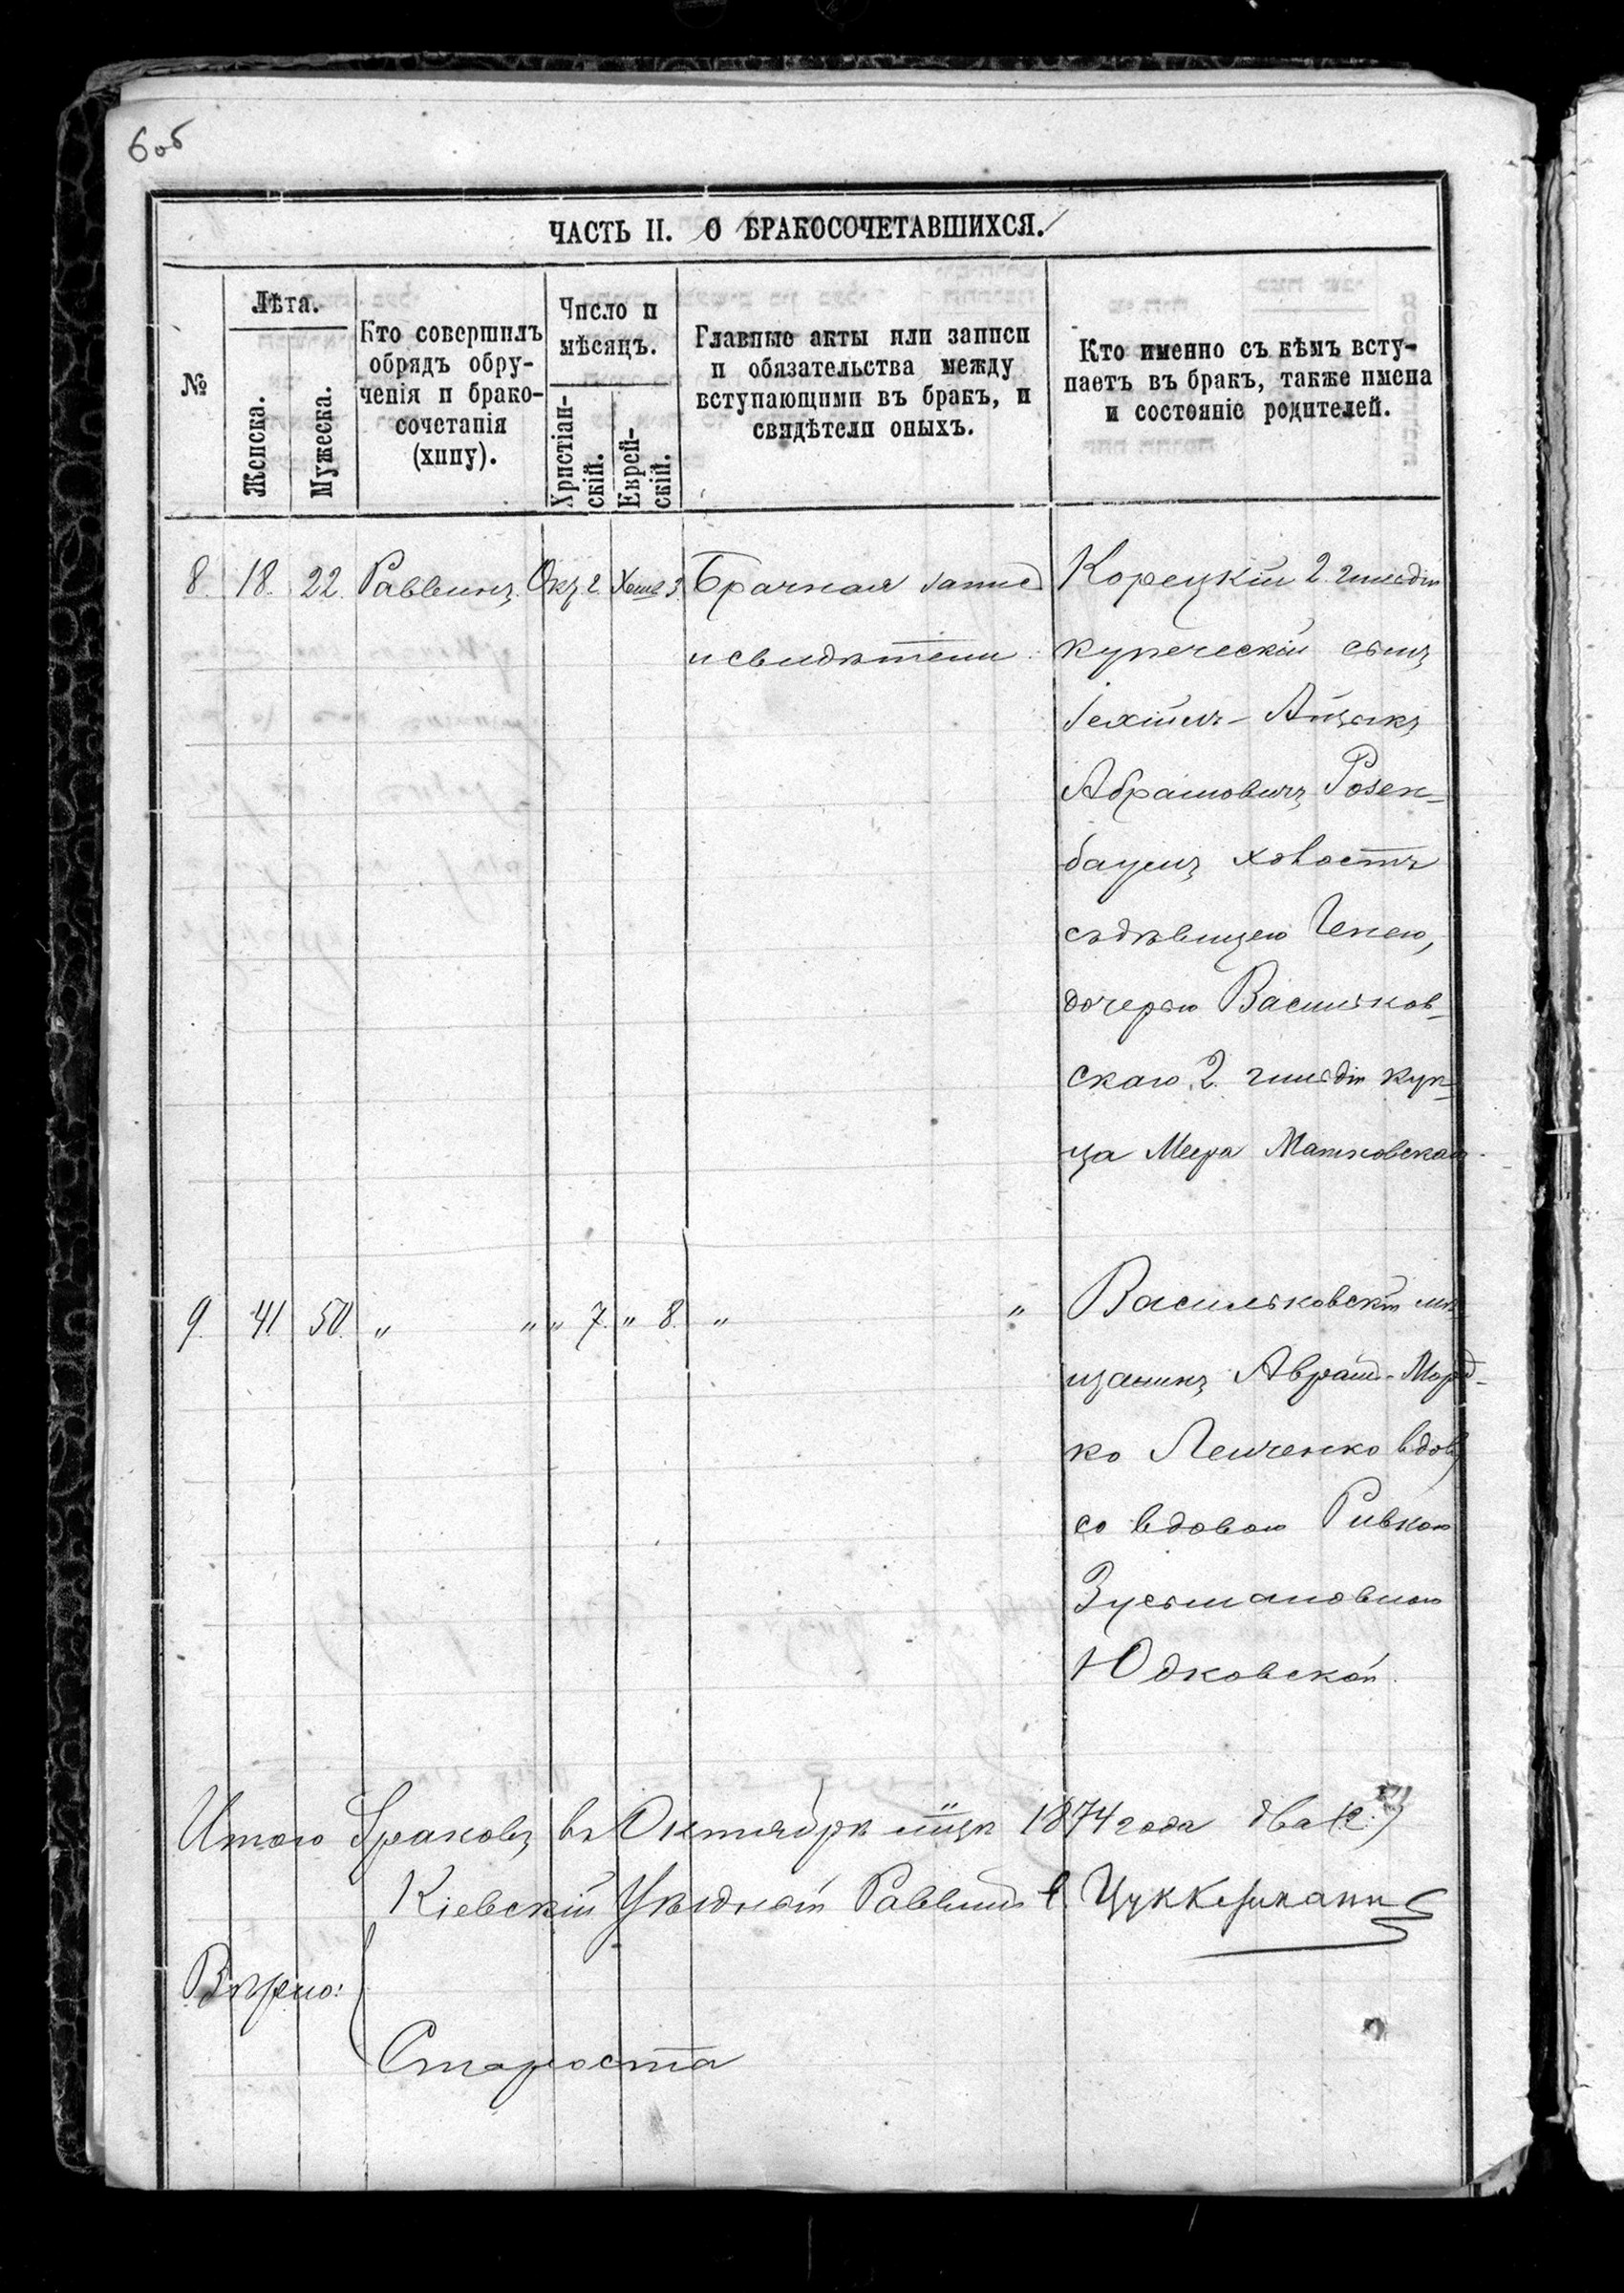 6 об
ЧАСТЬ II. О БРАКОСОЧЕТАВШИХСЯ.
№
Лѣта.
Женска.
Мужеска.
Кто совершилъ
обрядъ обру-
ченія и брако-
сочетанія
(хипу).
Число и
мѣсяцъ.
Христіан-
скій.
Еврей-
скій.
Главные акты или записи
и обязательства между
вступающими въ бракъ, и
свидѣтели оныхъ.
Кто именно съ кѣмъ всту-
паетъ въ бракъ, также имена
и состояніе родителей.
8. 18. 22. Раввинъ. Окт. 2. Хешв 3. Брачная запис Корецкій 2 гильдіи
и свидѣтели купеческій сынъ
Іехіилъ-Айзикъ
Абрамовичъ Розен-
баумъ холостъ
съ дѣвицею Генею,
дочерью Васильков-
скаго 2. гильдіи куп-
ца Меера Матковскаго
9. 41 50. " " " 7. " 8. " " Васильковскій мѣ
щанинъ Аврам-Морд-
ко Лемченко вдовъ
со вдовою Ривкою
Зусьмановною
Юдковской.
Итого браковъ въ Октябрѣ мцѣ 1874 года два (2.)
Кіевскій Уѣздный Раввинъ Е. Цуккерманъ
Вѣрно:
Староста